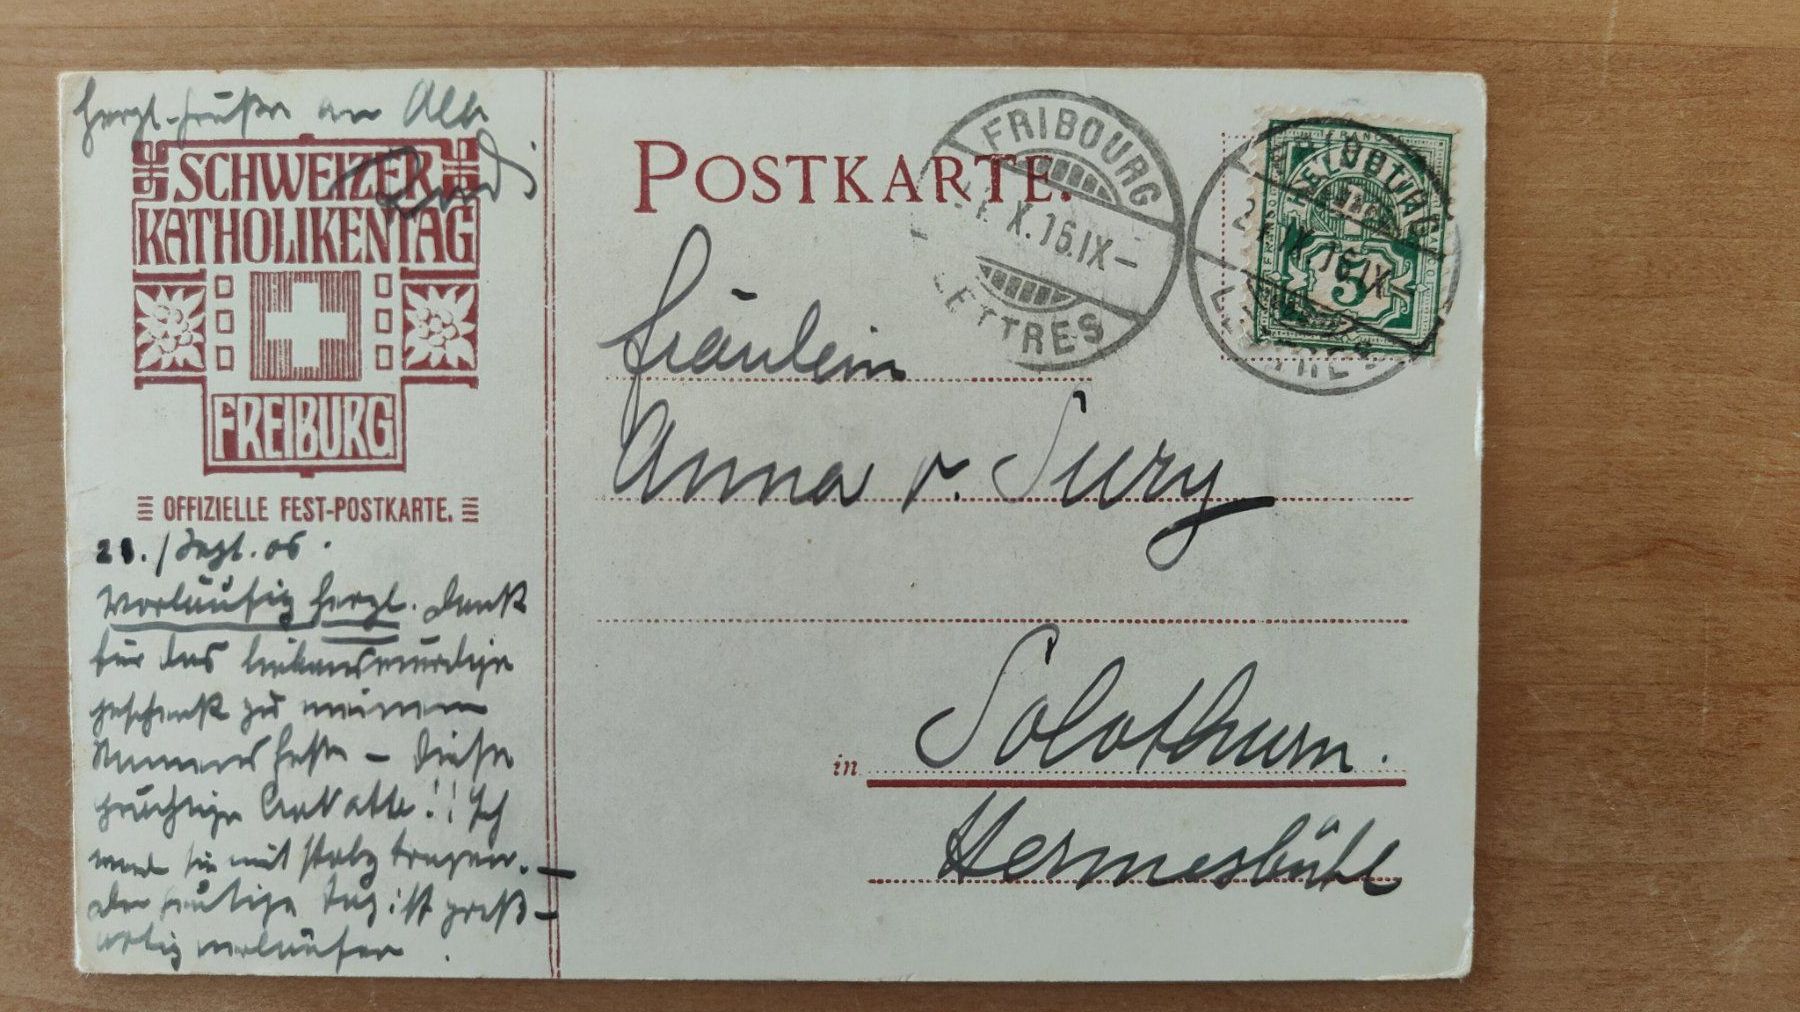 Herzl. Grüße an Alle
Rudi
SCHWEIZER
KATHOLIKENTAG
FREIBURG
OFFIZIELLE FEST-POSTKARTE.
Sept. 06.
Vorläufig herzl. Dank
für das liebenswürdige
Geschenk zu meinem
Namensfeste – diese
prächtige Cravatte!! Ich
werde sie mit Stolz tragen. –
Der heutige Tag ist groß-
artig verlaufen.
POSTKARTE.
FRIBOURG
X.16.IX–
LETTRES
FRIBOURG
IX.16.IX–
LETTRES
FRANCO
HELVETIA
5
Fräulein
Anna v. Sury
in Solothurn.
Hermesbühl